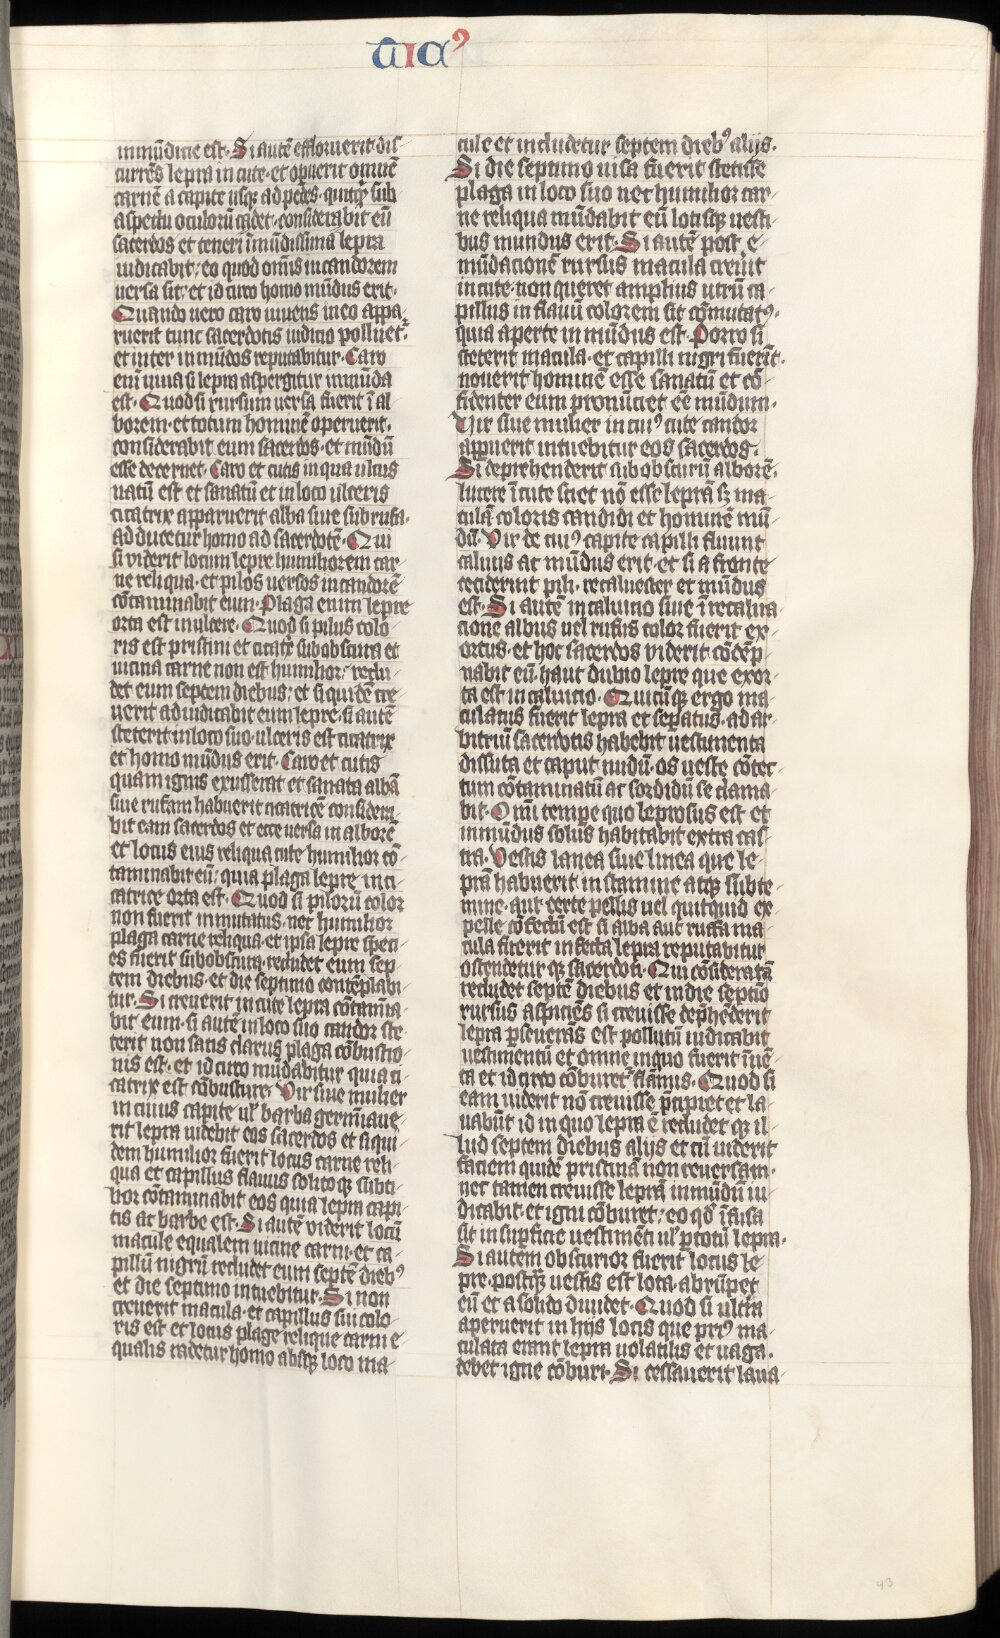 ūıaꝰ
inmūdicie est. Si autē effloruerit dis
currēs lepra in cute. et opuerit omnē
carnē a capite usq; ad pedes. quitqͥd sub
aspectu oculorū cadet. considerabit eū
sacerdos et teneri ī mūdissima lepra
iudicabit. eo quod omīs in candorem
uersa sit. et id circo homo mūdus erit.
Quando uero caro uiuens in eo appa
ruerit tunc sacerdotis iudicio polluet᷑.
et inter in mūdos reputabitur. Caro
enī uiua si lepra aspergitur inmūda
est. Quod si rursum uersa fuerit ī al
borem. et totum hominē operuerit.
considerabit eum sacerdos. et mūdū
esse decernet. Caro et cutis in qua ulcus
natū est et sanatū et in loco ulceris
cicatrix apparuerit alba siue subrufa.
ad ducetur homo ad sacerdotē. Qui
si viderit locum lepre humiliorem car
ne reliqua. et pilos uersos in candorē
cōtaminabit eum. Plaga enim lepre
orta est in ulcere. Quod si pilus colo
ris est pristini et cicatͥx subobscura et
uicina carne non est humilior. reclu
det eum septem diebus. et si quidē cre
uerit adiudicabit eum lepre. si autē
steterit in loco suo. ulceris est cicatrix
et homo mūdus erit. Caro et cutis
quam ignis exusserat et sanata albā
siue rufam habuerit cicatricē considera
bit eam sacerdos et ecce uersa in alborē
et locus eius reliqua cute humilior cō
taminabit eū. quia plaga lepre in ci
catrice orta est. Quod si pilorū color
non fuerit inmutatus. nec humilior
plaga carne reliqua. et ipsa lepre speci
es fuerit subobscura. recludet eum sep
tem diebus. et die septimo contēplabi
tur. Si creuerit in cute lepra cōtamīa
bit eum. si autē in loco suo candor ste
terit non satis clarus plaga cōbustio
nis est. et id circo mūdabitur quia ci
catrix est cōbusture. Vir siue mulier
in cuius capite ul' barba germīaue
rit lepra uidebit eos sacerdos et si qui
dem humilior fuerit locus carne reli
qua et capillus flauus solitoq; subti
lior cōtaminabit eos quia lepra capi
tis ac barbe est. Si autē viderit locū
macule equalem uicine carni. et ca
pillū nigrū recludet eum septē diebꝰ
et die septimo intuebitur. Si non
creuerit macula. et capillus sui colo
ris est et locus plage relique carni e
qualis radetur homo absq; loco ma
cule et includetur septem diebꝰ alijs.
Si die septimo uisa fuerit stetisse
plaga in loco suo nec humilior car
ne reliqua mūdabit eū lotisq; uesti
bus mundus erit. Si autē post e
mūdacionē rursus macula creuit
in cute. non queret amplius utrū ca
pillus in flauū colorem sit cōmutatꝰ.
quia aperte in mūdus est. Porro si
steterit macula. et capilli nigri fuerīt.
nouerit hominē esse sanatū et cō
fidenter eum pronūciet eē mūdum.
Vir siue mulier in cuiꝰ cute candor
apparuerit intuebitur eos sacerdos.
Si deprehenderit subobscurū alborē.
lucere ī cute sciet nō esse leprā sꝫ ma
culā coloris candidi et hominē mū
dū. Vir de cuiꝰ capite capilli fluunt
caluus ac mūdus erit. et si a fronte
ceciderint pili. recaluester et mūdus
est. Si autē in caluicio siue ī recalua
cione albus uel rufus color fuerit ex
ortus. et hoc sacerdos viderit cōdēp
nabit eū haut dubio lepre que exor
ta est in caluicio. Quicūq; ergo ma
culatus fuerit lepra et sepatus. ad ar
bitriū sacerdotis habebit uestimenta
dissuta et caput nudū. os ueste cōtec
tum cōtaminatū ac sordidū se clama
bit. Omī tempe quo leprosus est et
inmūdus solus habitabit extra cas
tra. Vestis lanea siue linea que le
prā habuerit in stamine atq; subte
mine. aut certe pellis uel quitquid ex
pelle cōfectū est si alba aut ruffa ma
cula fuerit infecta lepra reputabitur
ostendetur q; sacerdoti. Qui cōsideratā
recludet septē diebus et in die septīo
rursus aspiciēs si creuisse dep̄hēderit
lepra ꝑseuerās est pollutū iudicabit
uestimentū et omne in quo fuerit īuē
ta et id circo cōburet᷑ flāmis. Quod si
eam uiderit nō creuisse p̄cipiet et la
uabūt id in quo lepra ē recludet q; il
lud septem diebus alijs et cū uiderit
faciem quidē pristinā non reuersam.
nec tamen creuisse leprā inmūdū iu
dicabit. et igni cōburet. eo qd' īfusa
sit in supficie uestimēti ul' ꝑ totū lepra.
Si autem obscurior fuerit locus le
pre. postq̄ uestis est lota. abrūpet
eū et a solido diuidet. Quod si ultra
aperuerit in hijs locis que priꝰ ma
culata erant lepra uolatilis et uaga.
debet igne cōburi. Si cessauerit laua
43